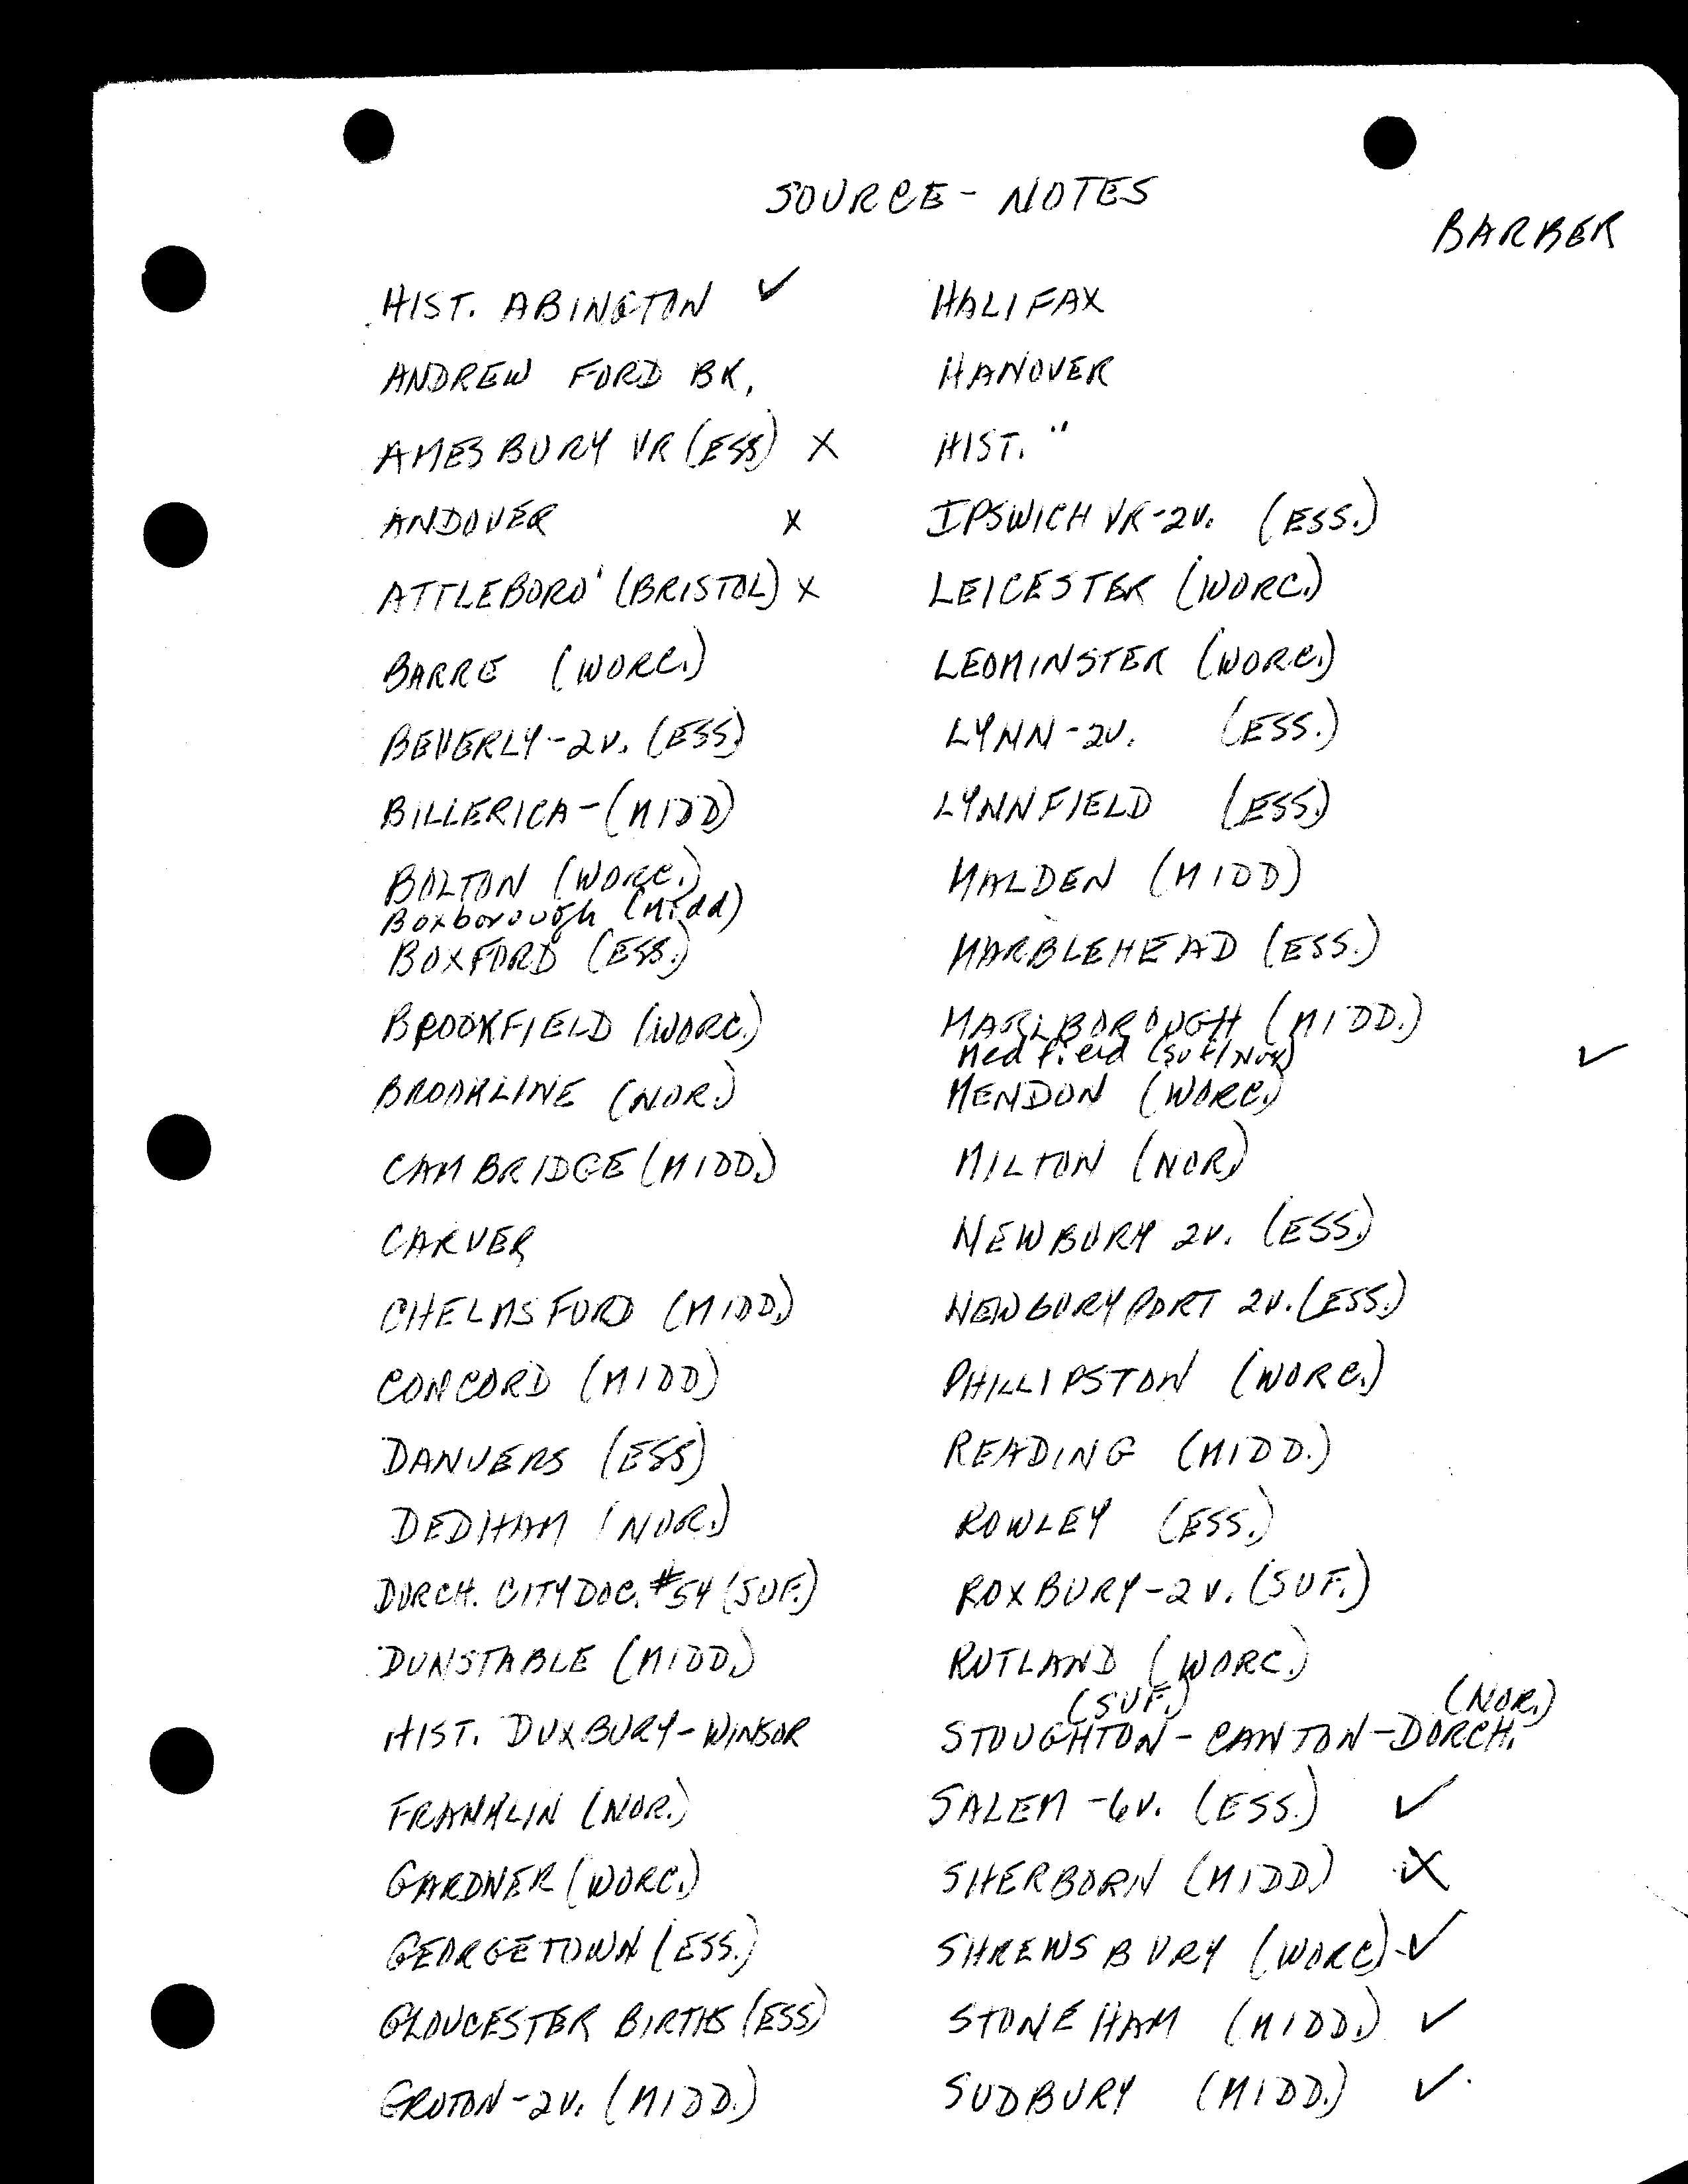 SOURCE - NOTES
BARBER
HIST. ABINGTON ✓
ANDREW FORD BK.
AMESBURY VR (ESS) X
ANDOVER X
ATTLEBORO' (BRISTOL) X
BARRE (WORC.)
BEVERLY - 2V. (ESS)
BILLERICA - (MIDD)
BOLTON (WORC.)
Boxborough (Midd)
BOXFORD (ESS.)
BROOKFIELD (WORC.)
BROOKLINE (NOR.)
CAMBRIDGE (MIDD.)
CARVER
CHELMSFORD (MIDD.)
CONCORD (MIDD)
DANVERS (ESS)
DEDHAM (NOR.)
DORCH. CITY DOC. #54 (SUF.)
DUNSTABLE (MIDD.)
HIST. DUXBURY - WINSOR
FRANKLIN (NOR.)
GARDNER (WORC.)
GEORGETOWN (ESS.)
GLOUCESTER BIRTHS (ESS)
GROTON - 2V. (MIDD.)
HALIFAX
HANOVER
HIST. "
IPSWICH VR - 2V. (ESS.)
LEICESTER (WORC.)
LEOMINSTER (WORC.)
LYNN - 2V. (ESS.)
LYNNFIELD (ESS.)
MALDEN (MIDD)
MARBLEHEAD (ESS.)
MARLBOROUGH (MIDD.)
Medfield (SUF/NOR) ✓
MENDON (WORC.)
MILTON (NOR)
NEWBURY 2V. (ESS.)
NEWBURYPORT 2V. (ESS.)
PHILLIPSTON (WORC.)
READING (MIDD.)
ROWLEY (ESS.)
ROXBURY - 2V. (SUF.)
RUTLAND (WORC.)
(SUF.) (NOR.)
STOUGHTON - CANTON - DORCH.
SALEM - 6V. (ESS.) ✓
SHERBORN (MIDD.) X
SHREWSBURY (WORC) ✓
STONEHAM (MIDD.) ✓
SUDBURY (MIDD.) ✓